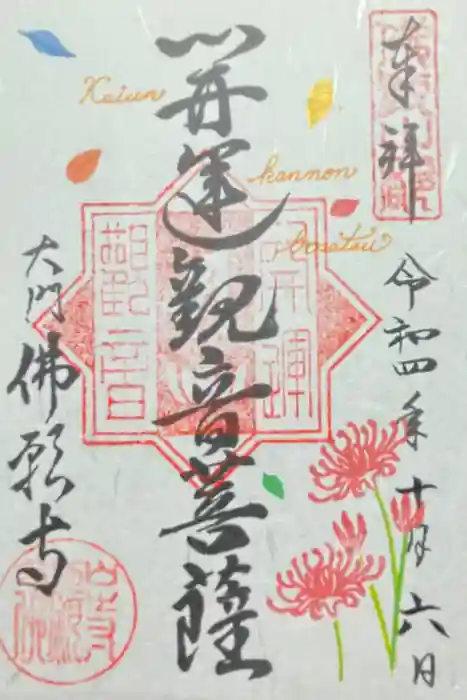 奉拝
令和四年十月六日
開運観音菩薩
Kaiun
kannon
bosatsu
開運
観音
大門
佛願寺